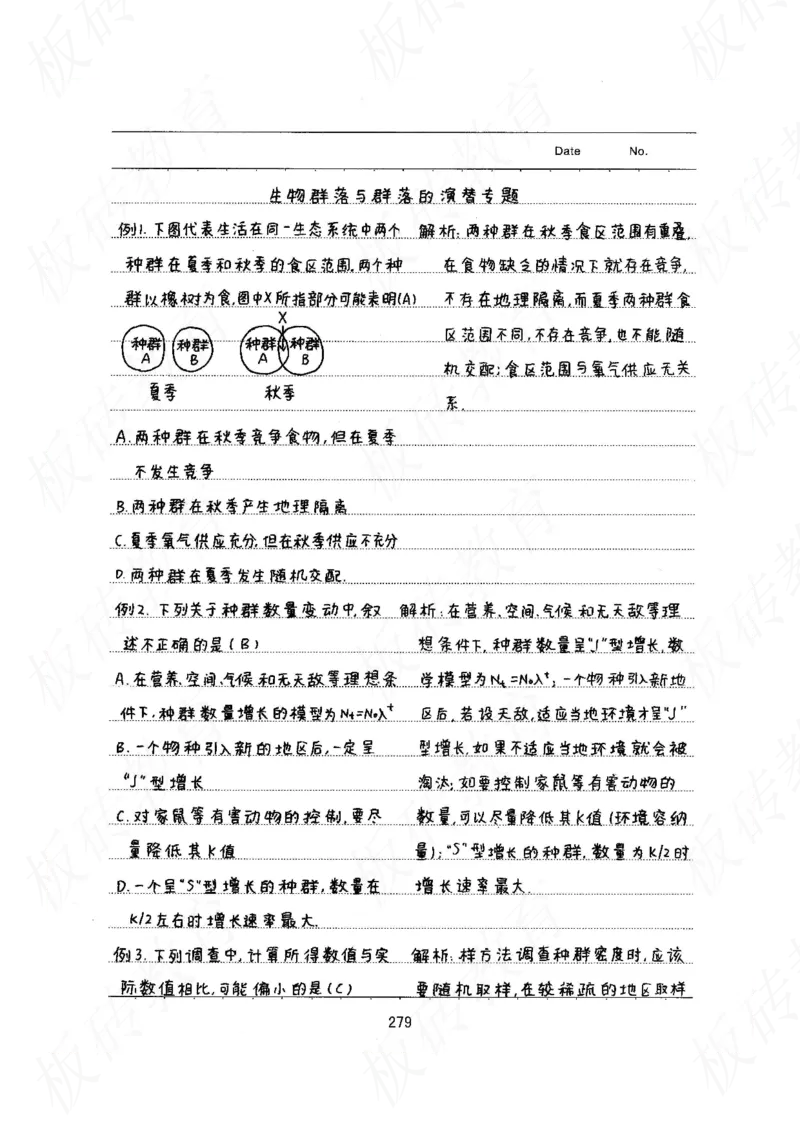 Date No.
生物群落与群落的演替专题
例1. 下图代表生活在同一生态系统中两个
种群在夏季和秋季的食区范围,两个种
群以橡树为食,图中X所指部分可能表明(A)
X
种群A 种群B 种群A 种群B
夏季 秋季
A. 两种群在秋季竞争食物,但在夏季
不发生竞争
B. 两种群在秋季产生地理隔离
C. 夏季氧气供应充分,但在秋季供应不充分
D. 两种群在夏季发生随机交配.
解析: 两种群在秋季食区范围有重叠,
在食物缺乏的情况下就存在竞争,
不存在地理隔离,而夏季两种群食
区范围不同,不存在竞争,也不能随
机交配;食区范围与氧气供应无关
系.
例2. 下列关于种群数量变动中,叙
述不正确的是(B)
A. 在营养、空间、气候和无天敌等理想条
件下,种群数量增长的模型为Nt=N₀λᵗ
B. 一个物种引入新的地区后,一定呈
“J”型增长
C. 对家鼠等有害动物的控制,要尽
量降低其K值
D. 一个呈“S”型增长的种群,数量在
K/2左右时增长速率最大.
解析: 在营养、空间、气候和无天敌等理
想条件下,种群数量呈“J”型增长,数
学模型为Nt=N₀λᵗ;一个物种引入新地
区后,若没天敌,适应当地环境才呈“J”
型增长,如果不适应当地环境就会被
淘汰;如要控制家鼠等有害动物的
数量,可以尽量降低其K值(环境容纳
量);“S”型增长的种群,数量为K/2时
增长速率最大.
例3. 下列调查中,计算所得数值与实
际数值相比,可能偏小的是(C)
解析: 样方法调查种群密度时,应该
要随机取样,在较稀疏的地区取样
279
板砖教育